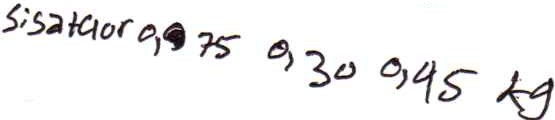 sisatclor 0,075 0,30 0,45 kg